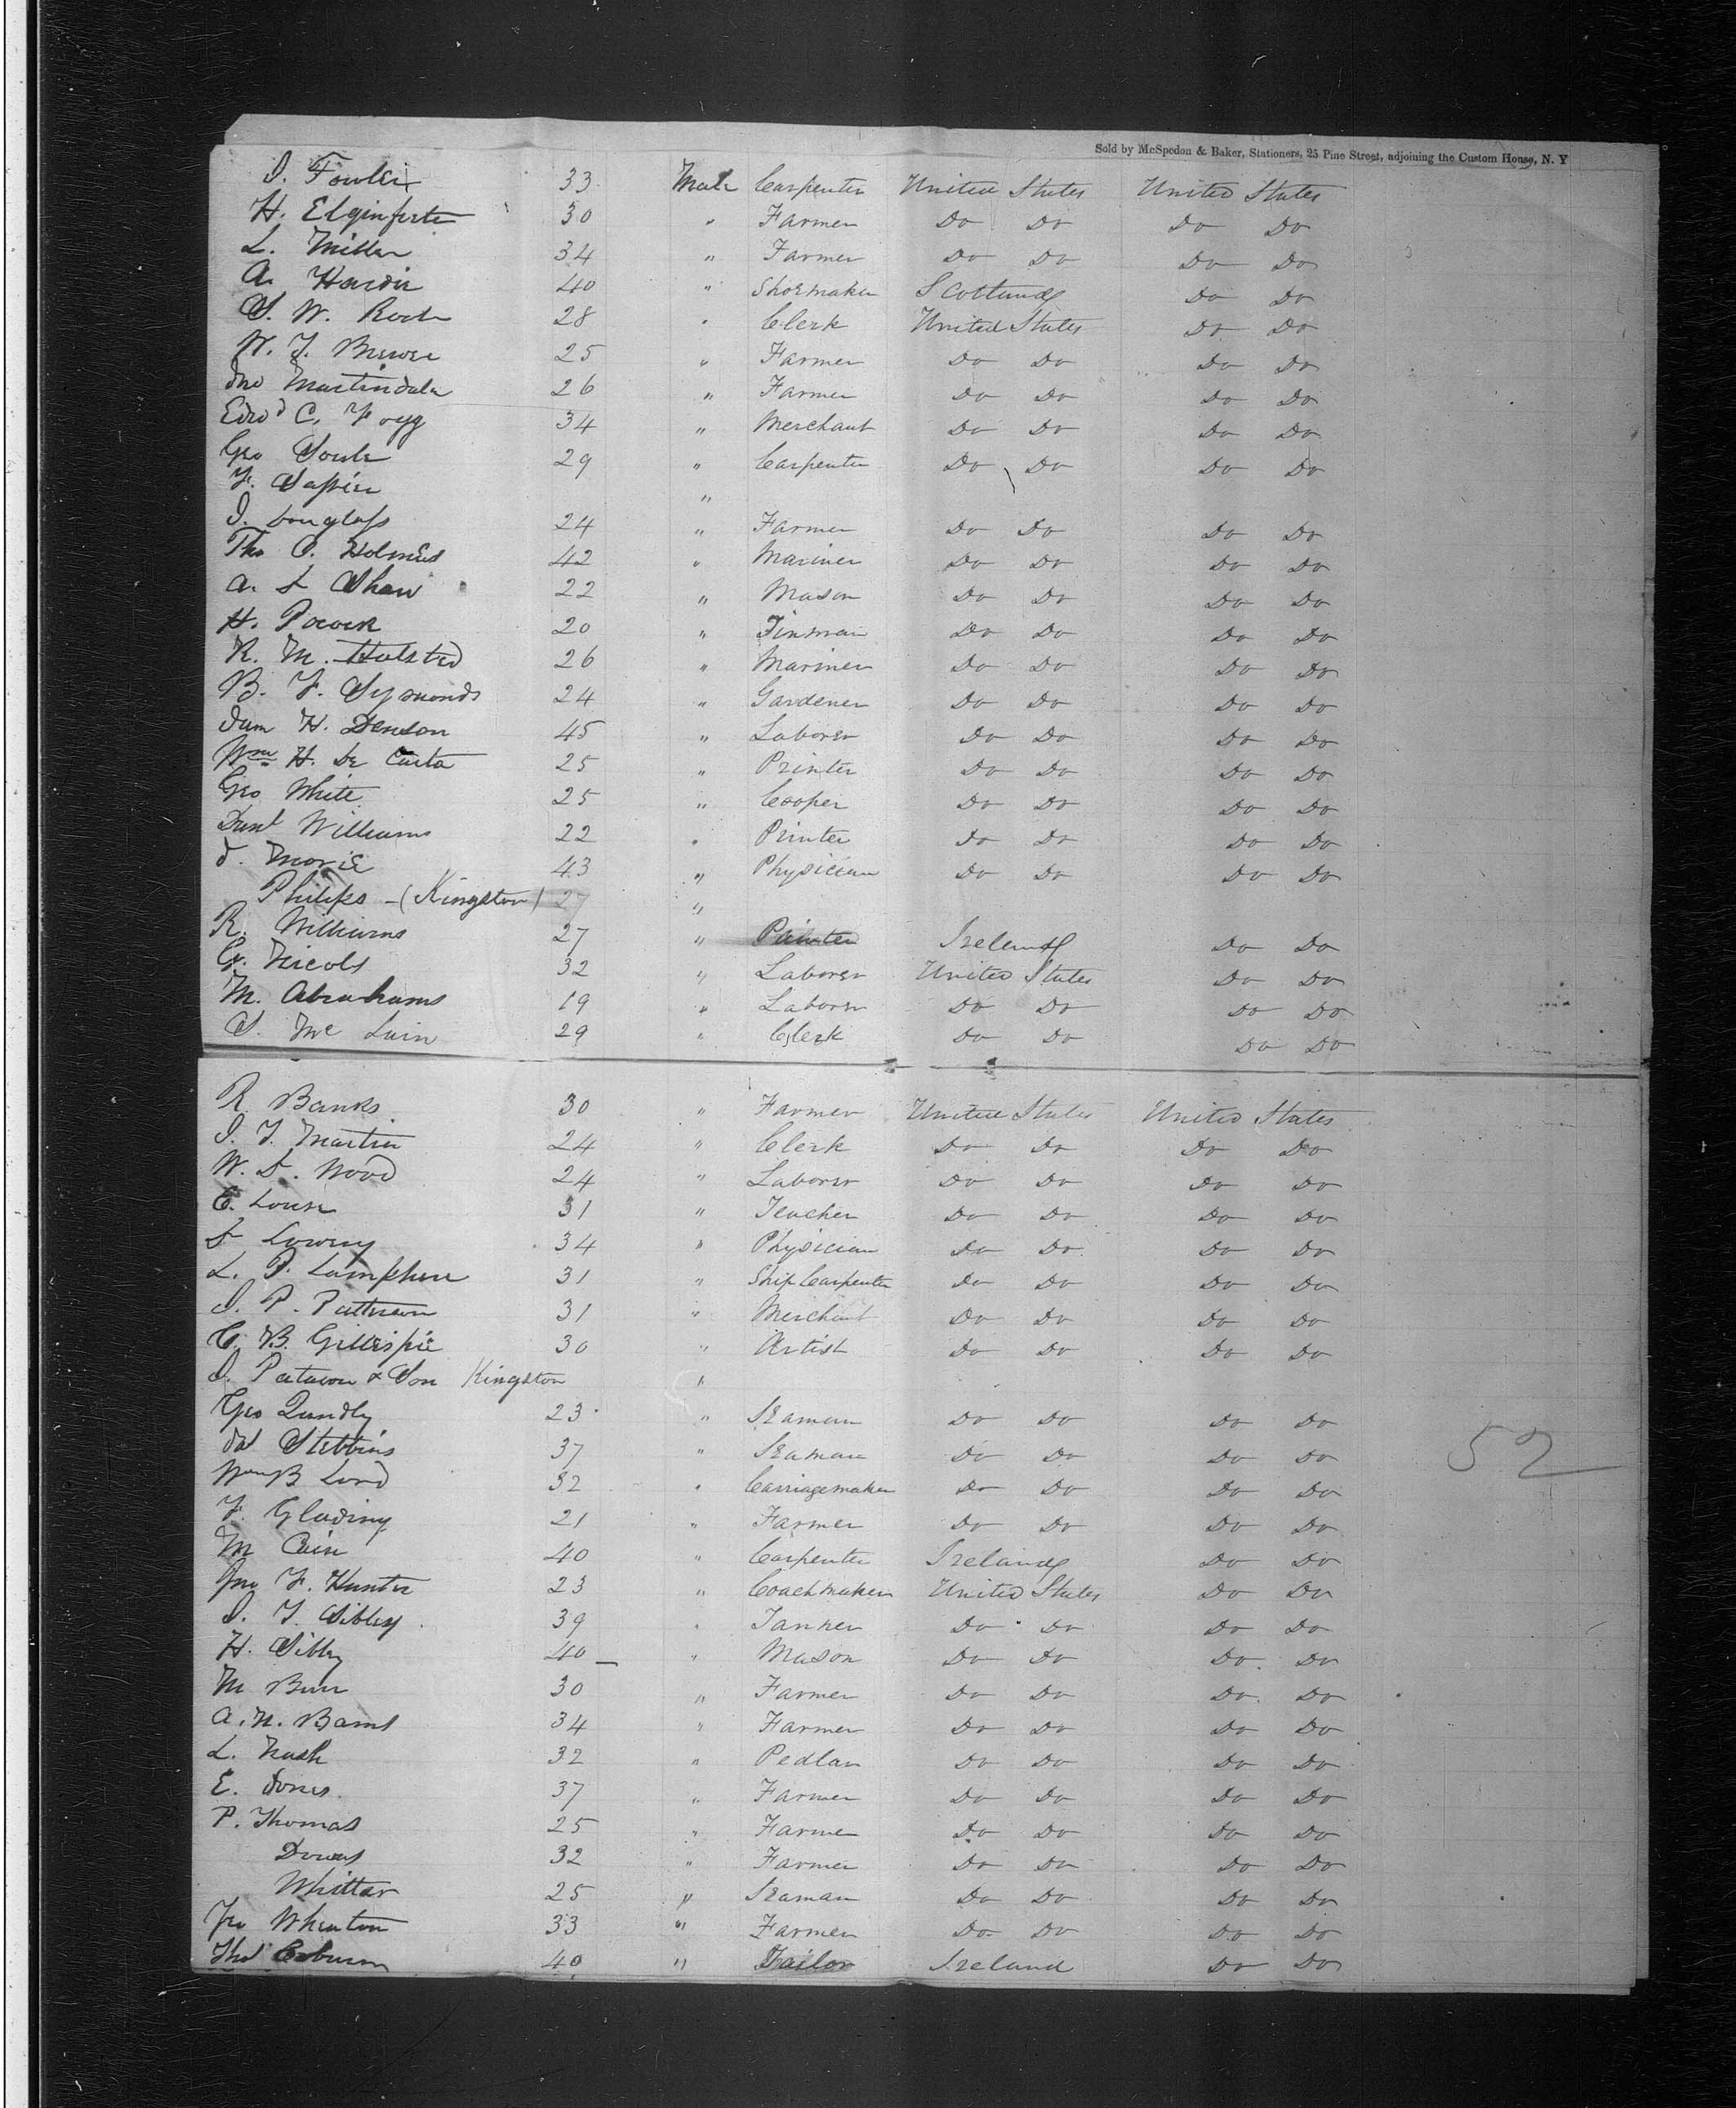 Sold by McSpedon & Baker, Stationers, 25 Pine Street, adjoining the Custom House, N. Y
J. Fowler 33 Male Carpenter United States United States
H. Elginfertr 30 " Farmer Do Do Do Do
L. Miller 34 " Farmer Do Do Do Do
A. Hardie 40 " Shoemaker Scotland Do Do
S. W. 28 " Clerk United States Do Do
W. T. Brewer 25 " Farmer Do Do Do Do
Jno Martindale 26 " Farmer Do Do Do Do
Edwd C. Fogg 34 " Merchant Do Do Do Do
Geo Soule 29 " Carpenter Do Do Do Do
F. "
J. Douglass 24 " Farmer Do Do Do Do
Tho C. Holmes 42 " Mariner Do Do Do Do
A. L Shaw 22 " Mason Do Do Do Do
H. Pocock 20 " Tinman Do Do Do Do
R. M. Halsted 26 " Mariner Do Do Do Do
B. F. Symonds 24 " Gardener Do Do Do Do
Sam H. Denson 45 " Laborer Do Do Do Do
Wm H. De Costa 25 " Printer Do Do Do Do
Geo White 25 " Cooper Do Do Do Do
Danl Williams 22 " Printer Do Do Do Do
J. Morse 43 " Physician Do Do Do Do
Philips - (Kingston) 27 "
R. Williams 27 " Painter Ireland Do Do
G. Nicols 32 " Laborer United States Do Do
M. Abrahams 19 " Laborer Do Do Do Do
S. Mc Lain 29 " Clerk Do Do Do Do
R. Banks 30 " Farmer United States United States
J. T. Martin 24 " Clerk Do Do Do Do
W. D. Wood 24 " Laborer Do Do Do Do
C. 31 " Teacher Do Do Do Do
L Lowery 34 " Physician Do Do Do Do
L. P. Lamphere 31 " Ship Carpenter Do Do Do Do
J. P. Patterson 31 " Merchant Do Do Do Do
C. B. Gillespie 30 " Artist Do Do Do Do
J. & Son Kingston "
Geo Qundly 23 " Seaman Do Do Do Do
Jas Stebbins 37 " Seaman Do Do Do Do
Wm B Lord 32 " Carriagemaker Do Do Do Do
F. Glading 21 " Farmer Do Do Do Do
M Cain 40 " Carpenter Ireland Do Do
Jno F. Hunter 23 " Coachmaker United States Do Do
J. T. Sibley 39 " Tanner Do Do Do Do
H. Sibley 40 " Mason Do Do Do Do
M Burr 30 " Farmer Do Do Do Do
A. N. Barns 34 " Farmer Do Do Do Do
L. Nash 32 " Pedlar Do Do Do Do
E. Jones 37 " Farmer Do Do Do Do
P. Thomas 25 " Farme Do Do Do Do
Downs 32 " Farmer Do Do Do Do
Whittar 25 " Seaman Do Do Do Do
Geo Wheaton 33 " Farmer Do Do Do Do
Thos Coburn 40 " Tailor Ireland Do Do
52